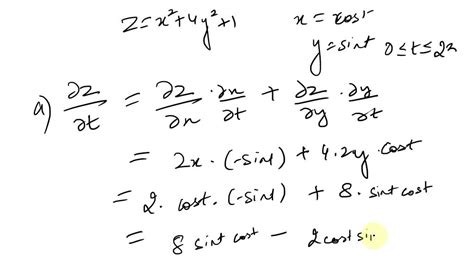 z = x² + 4y² + 1
x = cost
y = sint 0 ≤ t ≤ 2π
a) ∂z/∂t = ∂z/∂x · ∂x/∂t + ∂z/∂y · ∂y/∂t
= 2x · (-sint) + 4.2y · cost
= 2 · cost · (-sint) + 8 · sint cost
= 8 sint cost - 2 cost si